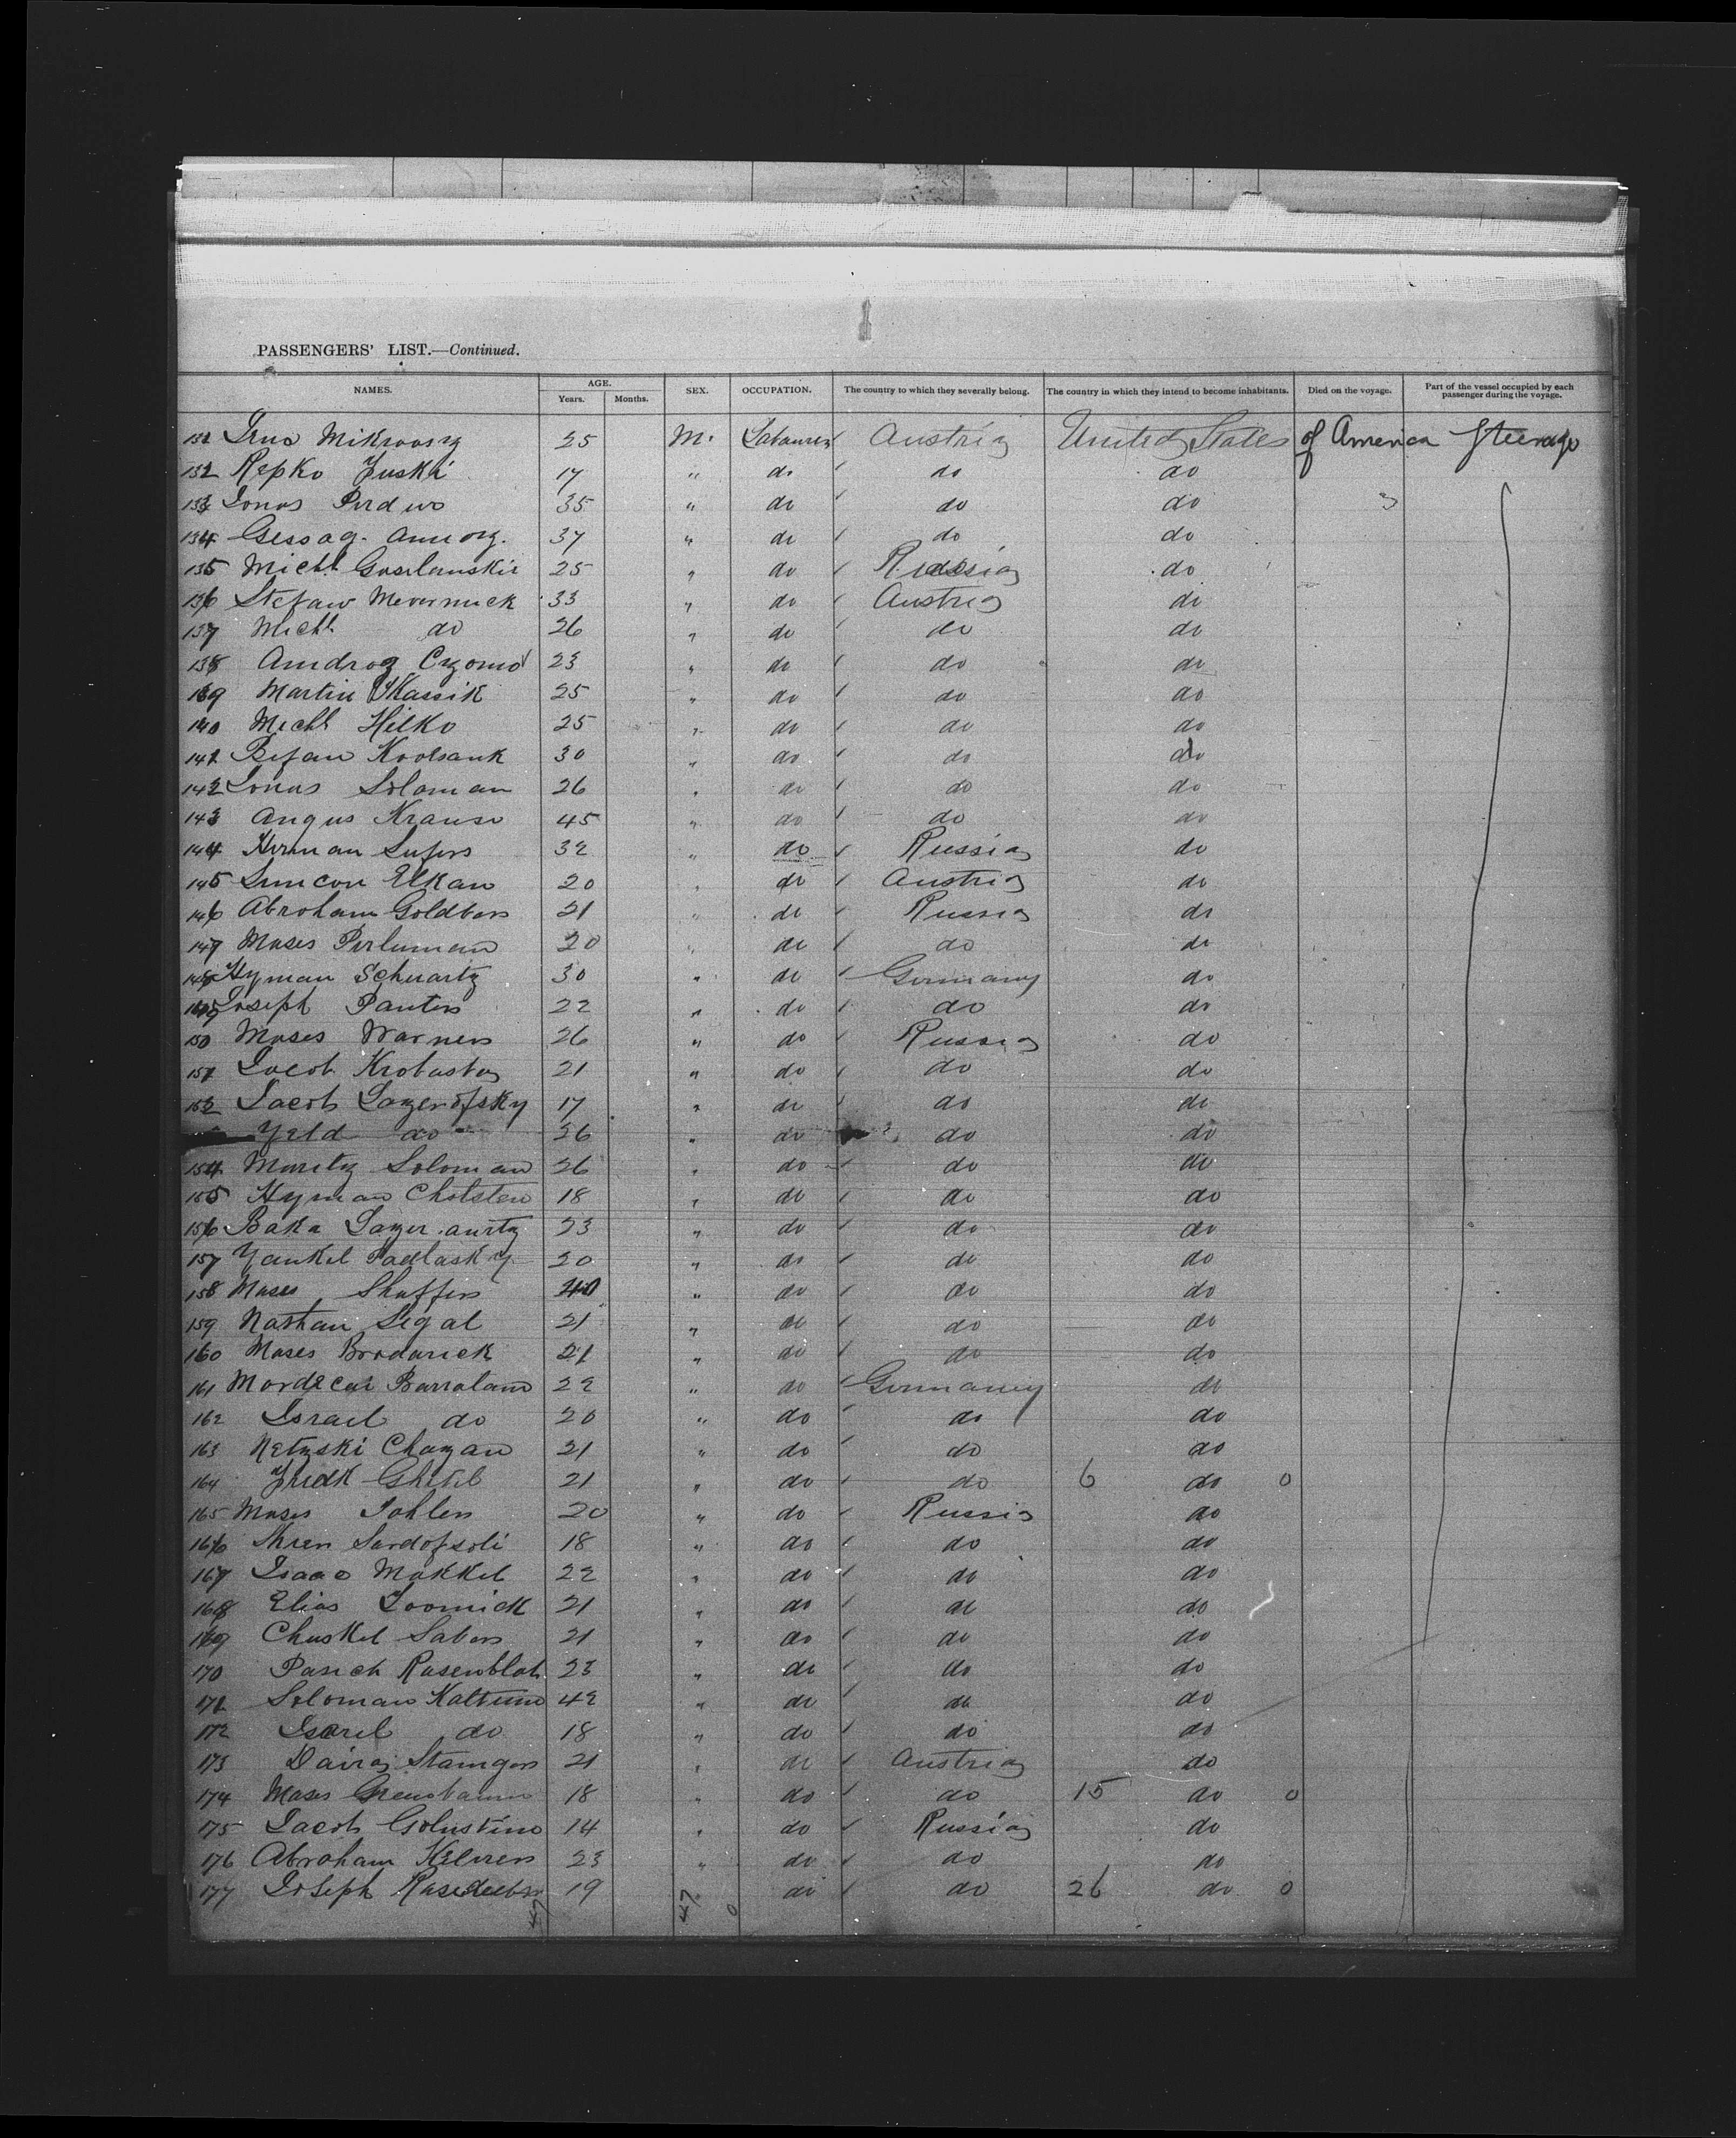 PASSENGERS' LIST.—Continued.
NAMES. AGE. Years. Months. SEX. OCCUPATION. The country to which they severally belong. The country in which they intend to become inhabitants. Died on the voyage. Part of the vessel occupied by each passenger during the voyage.
131 Mikrovszg 25 M. Labourer Austria United States of America Steerage
132 Repko Juski 17 " do do do
133 Jonos Perdwo 35 " do do do
134 37 " do do do
135 Michl 25 " do Russia do
136 Stefaw 33 " do Austria do
137 Michl do 26 " do do do
138 Androg 23 " do do do
139 Martin Kassik 25 " do do do
140 Michl Hilko 25 " do do do
141 Koolsank 30 " do do do
142 Jonas Soloman 26 " do do do
143 Angus Krause 45 " do do do
144 Herman 32 " do Russia do
145 Simeon Elkan 20 " do Austria do
146 Abraham Goldbers 21 " do Russia do
147 Moses Perluman 20 " do do do
148 Hyman Schwartz 30 " do Germany do
149 Joseph Panters 22 " do do do
150 Moses Warners 26 " do Russia do
151 Jacob 21 " do do do
152 Jacob Lazerofsky 17 " do do do
Yeld do 26 " do do do
154 Moritz Soloman 26 " do do do
155 Hyman Cholsten 18 " do do do
156 Baka 23 " do do do
157 Yankel Padlasky 20 " do do do
158 Moses Shaffers " do do do
159 Nathan Segal 21 " do do do
160 Moses Brodarick 21 " do do do
161 Mordecai 22 " do Germany do
162 Israel do 20 " do do do
163 Netzski Chazan 21 " do do do
164 Fredk 21 " do do 6 do 0
165 Moses Johlen 20 " do Russia do
166 Sardofsoli 18 " do do do
167 Isaac Makkel 22 " do do do
168 Elias Loomick 21 " do do do
169 Chuskel Sabers 21 " do do do
170 Rosenblat 23 " do do do
171 Soloman 42 " do do do
172 do 18 " do do do
173 21 " do Austria do
174 Moses Greenbaum 18 " do do 15 do 0
175 Jacob Golustino 14 " do Russia do
176 Abraham 23 " do do do
177 Joseph 19 " do do 26 do 0
47 47 0